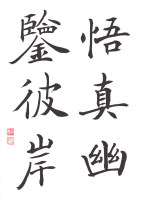 悟真幽
鑒彼岸